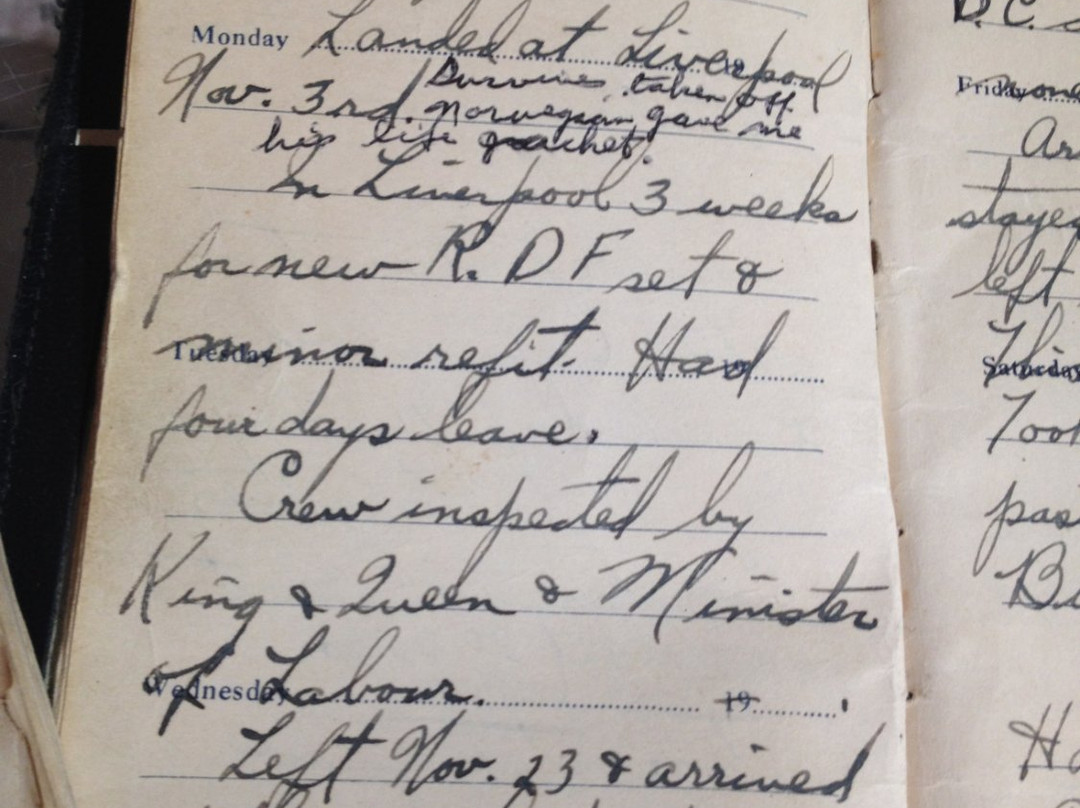 Monday Landed at Liverpool
Nov. 3rd. Survivors taken off.
Norwegian gave me
his life jacket.
In Liverpool 3 weeks
for new R. D F set &
Tuesday minor refit. Had
four days leave.
Crew inspected by
King & Queen & Minister
Wednesday of Labour. 19
Left Nov. 23 & arrived
D.C.
Friday
Ar
stayed
left
Saturday
Took
pas
Bu
Ha